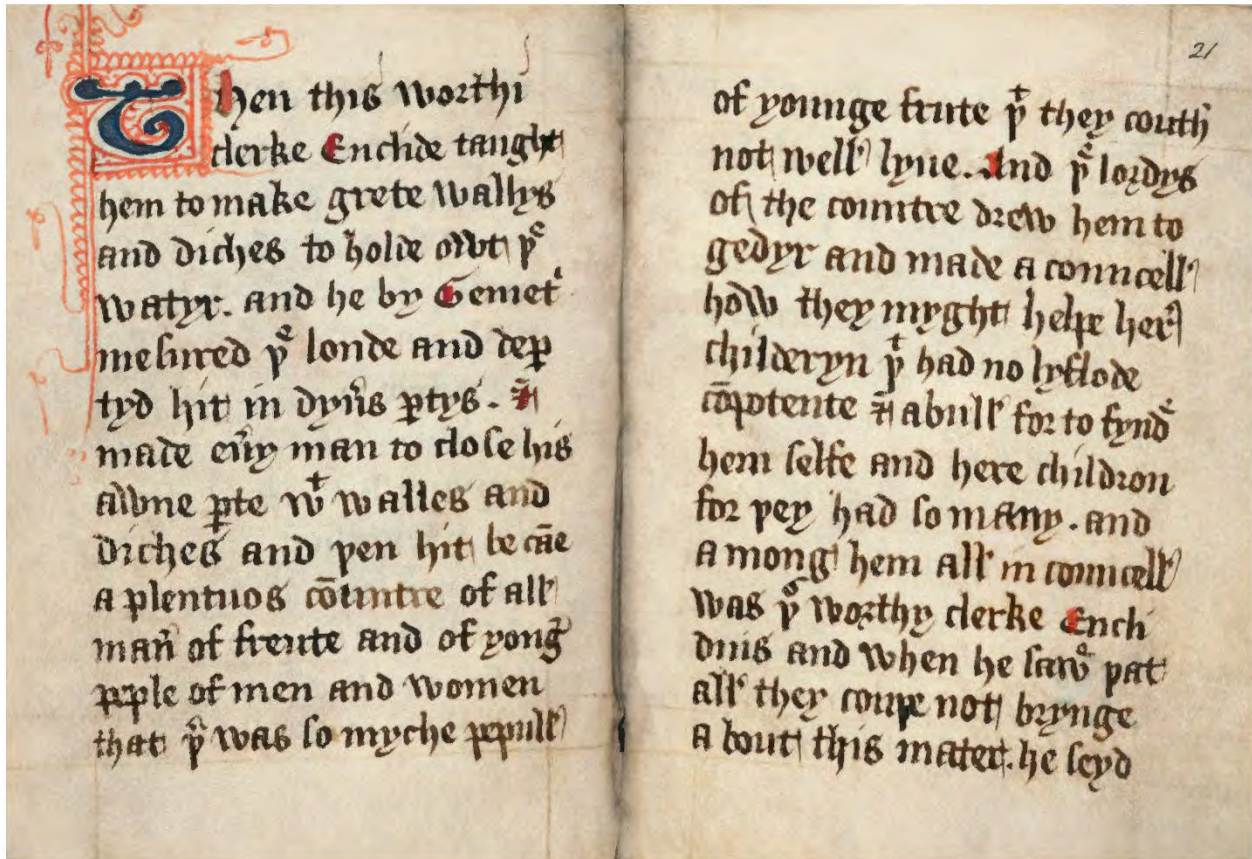 Then this worthi
clerke Euclide taught
hem to make grete wallys
and diches to holde owt þͤ
watyr. and he by Gemetͥ
mesured þͤ londe and dep̱
tyd hit in dyūs ꝑtys. ⁊
made eūy man to close his
awne ꝑte wͭ walles and
diches and þen hit be cāe
a plentuos cōuntre of all
man̄ of freute and of yonḡ
peple of men and women
that þͤ was so myche pepull
21
of younge frute þͭ they couth
not well lyue. And þͤ lordys
of the countre drew hem to
gedyr and made a councell
how they myght helpe her
childeryn þͭ had no lyflode
cōpotente ⁊ abull for to fyndͤ
hem selfe and here childron
for þey had so many. and
a mong hem all in councell
was þͤ worthy clerke Eucli
dnis and when he sawͤ þat
all they couþe not brynge
a bout this mater. he seyd